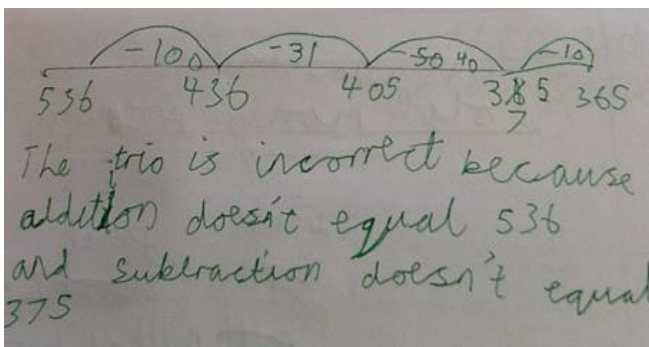 -100 -31 -50 40 -10
536 436 405 385 365
7
The trio is incorrect because
addition doesn't equal 536
and subtraction doesn't equal
375